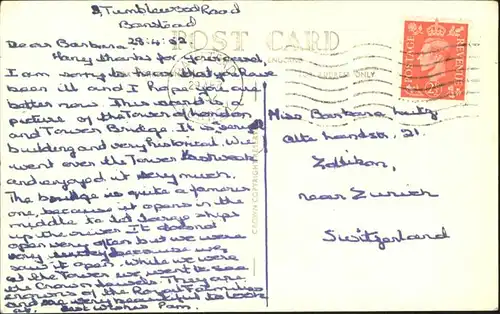 9, Tumblewood Road
Banstead
29.4.52
POST CARD
Dear Barbara,
Many thanks for your card,
I am sorry to hear that you have
been ill and I hope you are
better now. This card is
picture of the Tower of London
and Tower Bridge. It is a
building and very historical. We
went over the Tower last week
and enjoyed it very much.
The bridge is quite a famous
one, because it opens in the
middle to let large ships
up the river. It doesnt
open very often but we were
very lucky because we
saw it open. While we were
at the Tower we went to see
the Crown Jewels. They are
crowns of the Royal Families
and are very beautiful to look
at. Best wishes Pam.
CROWN COPYRIGHT
ADDRESS ONLY
POSTAGE REVENUE
Miss Barbara Lutz
Alte Landstr. 21.
Zollikon,
near Zurich
Switzerland